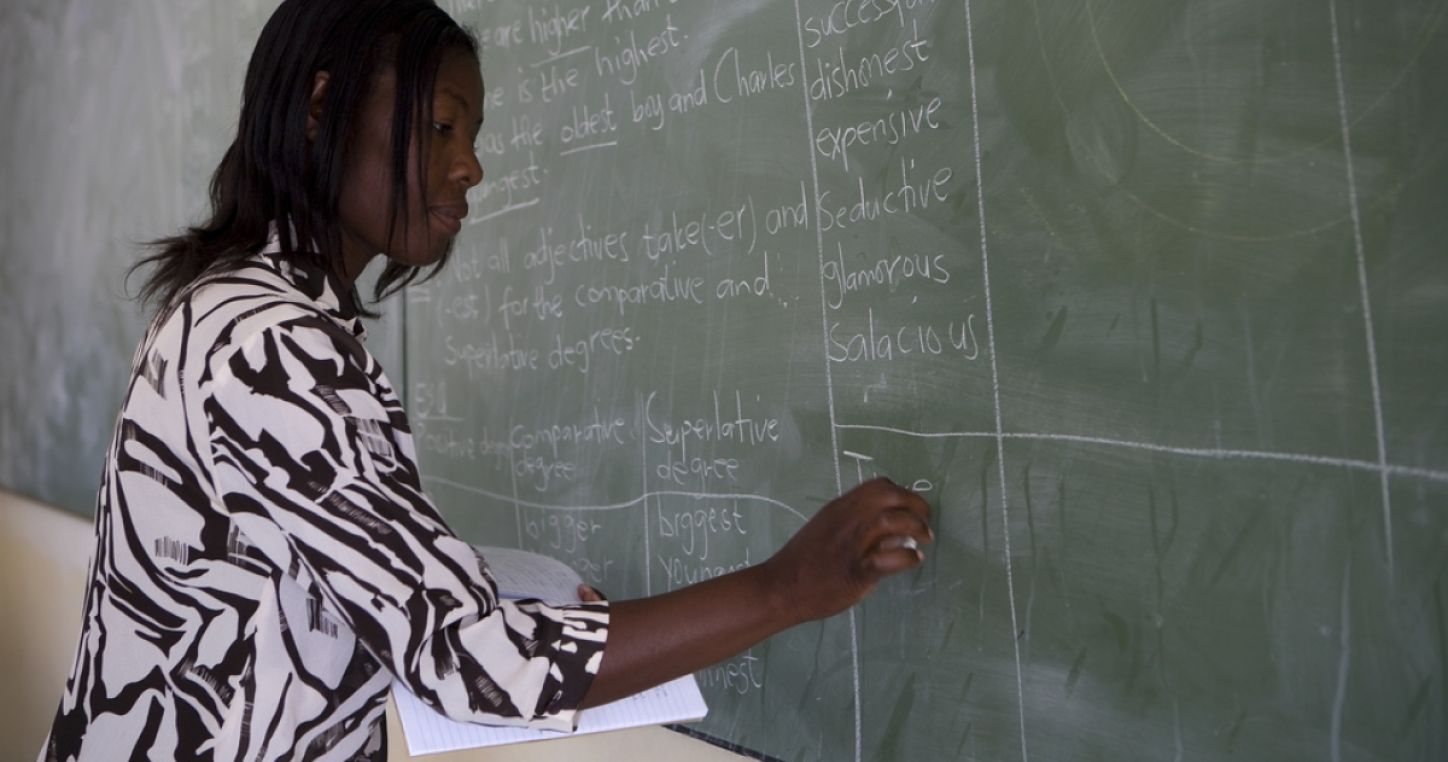 are higher than
is the highest.
the oldest boy and Charles
Not all adjectives take (-er) and
(-est) for the comparative and
Superlative degrees.
Positive degree Comparative degree Superlative degree
bigger biggest
Youngest
successful
dishonest
expensive
Seductive
glamorous
Salacious